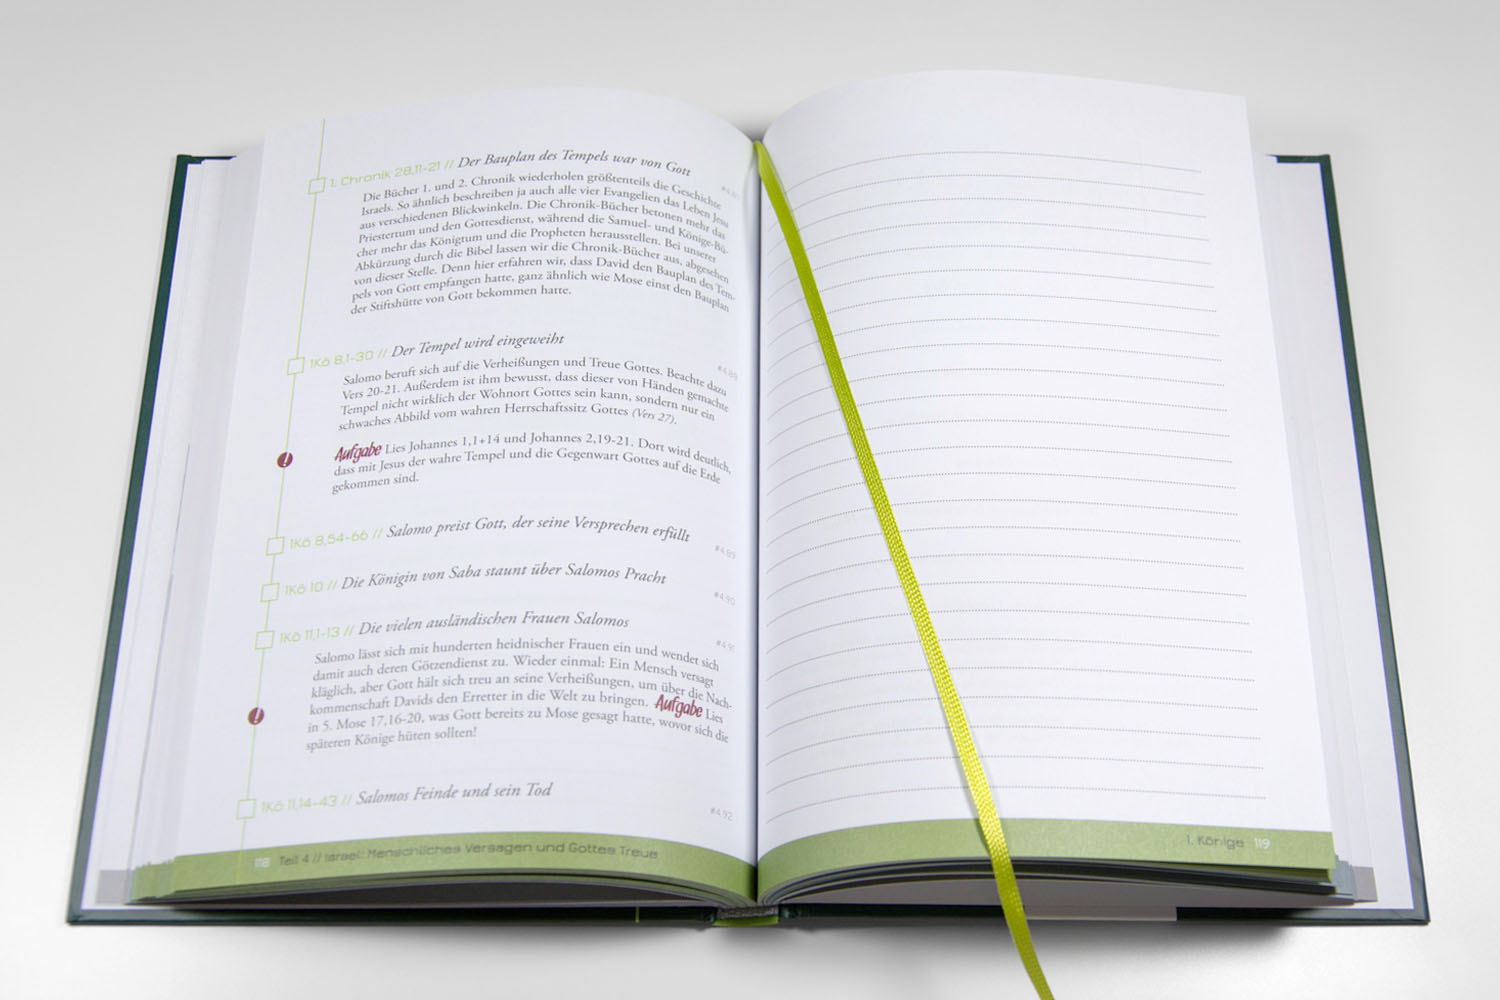 1. Chronik 28,11-21 // Der Bauplan des Tempels war von Gott
Die Bücher 1. und 2. Chronik wiederholen größtenteils die Geschichte
Israels. So ähnlich beschreiben ja auch alle vier Evangelien das Leben Jesu
aus verschiedenen Blickwinkeln. Die Chronik-Bücher betonen mehr das
Priestertum und den Gottesdienst, während die Samuel- und Könige-Bü-
cher mehr das Königtum und die Propheten herausstellen. Bei unserer
Abkürzung durch die Bibel lassen wir die Chronik-Bücher aus, abgesehen
von dieser Stelle. Denn hier erfahren wir, dass David den Bauplan des Tem-
pels von Gott empfangen hatte, ganz ähnlich wie Mose einst den Bauplan
der Stiftshütte von Gott bekommen hatte.
1Kö 8,1-30 // Der Tempel wird eingeweiht
#4.88
Salomo beruft sich auf die Verheißungen und Treue Gottes. Beachte dazu
Vers 20-21. Außerdem ist ihm bewusst, dass dieser von Händen gemachte
Tempel nicht wirklich der Wohnort Gottes sein kann, sondern nur ein
schwaches Abbild vom wahren Herrschaftssitz Gottes (Vers 27).
! Aufgabe Lies Johannes 1,1+14 und Johannes 2,19-21. Dort wird deutlich,
dass mit Jesus der wahre Tempel und die Gegenwart Gottes auf die Erde
gekommen sind.
1Kö 8,54-66 // Salomo preist Gott, der seine Versprechen erfüllt
#4.89
1Kö 10 // Die Königin von Saba staunt über Salomos Pracht
#4.90
1Kö 11,1-13 // Die vielen ausländischen Frauen Salomos
#4.91
Salomo lässt sich mit hunderten heidnischer Frauen ein und wendet sich
damit auch deren Götzendienst zu. Wieder einmal: Ein Mensch versagt
kläglich, aber Gott hält sich treu an seine Verheißungen, um über die Nach-
kommenschaft Davids den Erretter in die Welt zu bringen. Aufgabe Lies
! in 5. Mose 17,16-20, was Gott bereits zu Mose gesagt hatte, wovor sich die
späteren Könige hüten sollten!
1Kö 11,14-43 // Salomos Feinde und sein Tod
#4.92
118 Teil 4 // Israel: Menschliches Versagen und Gottes Treue
1. Könige 119